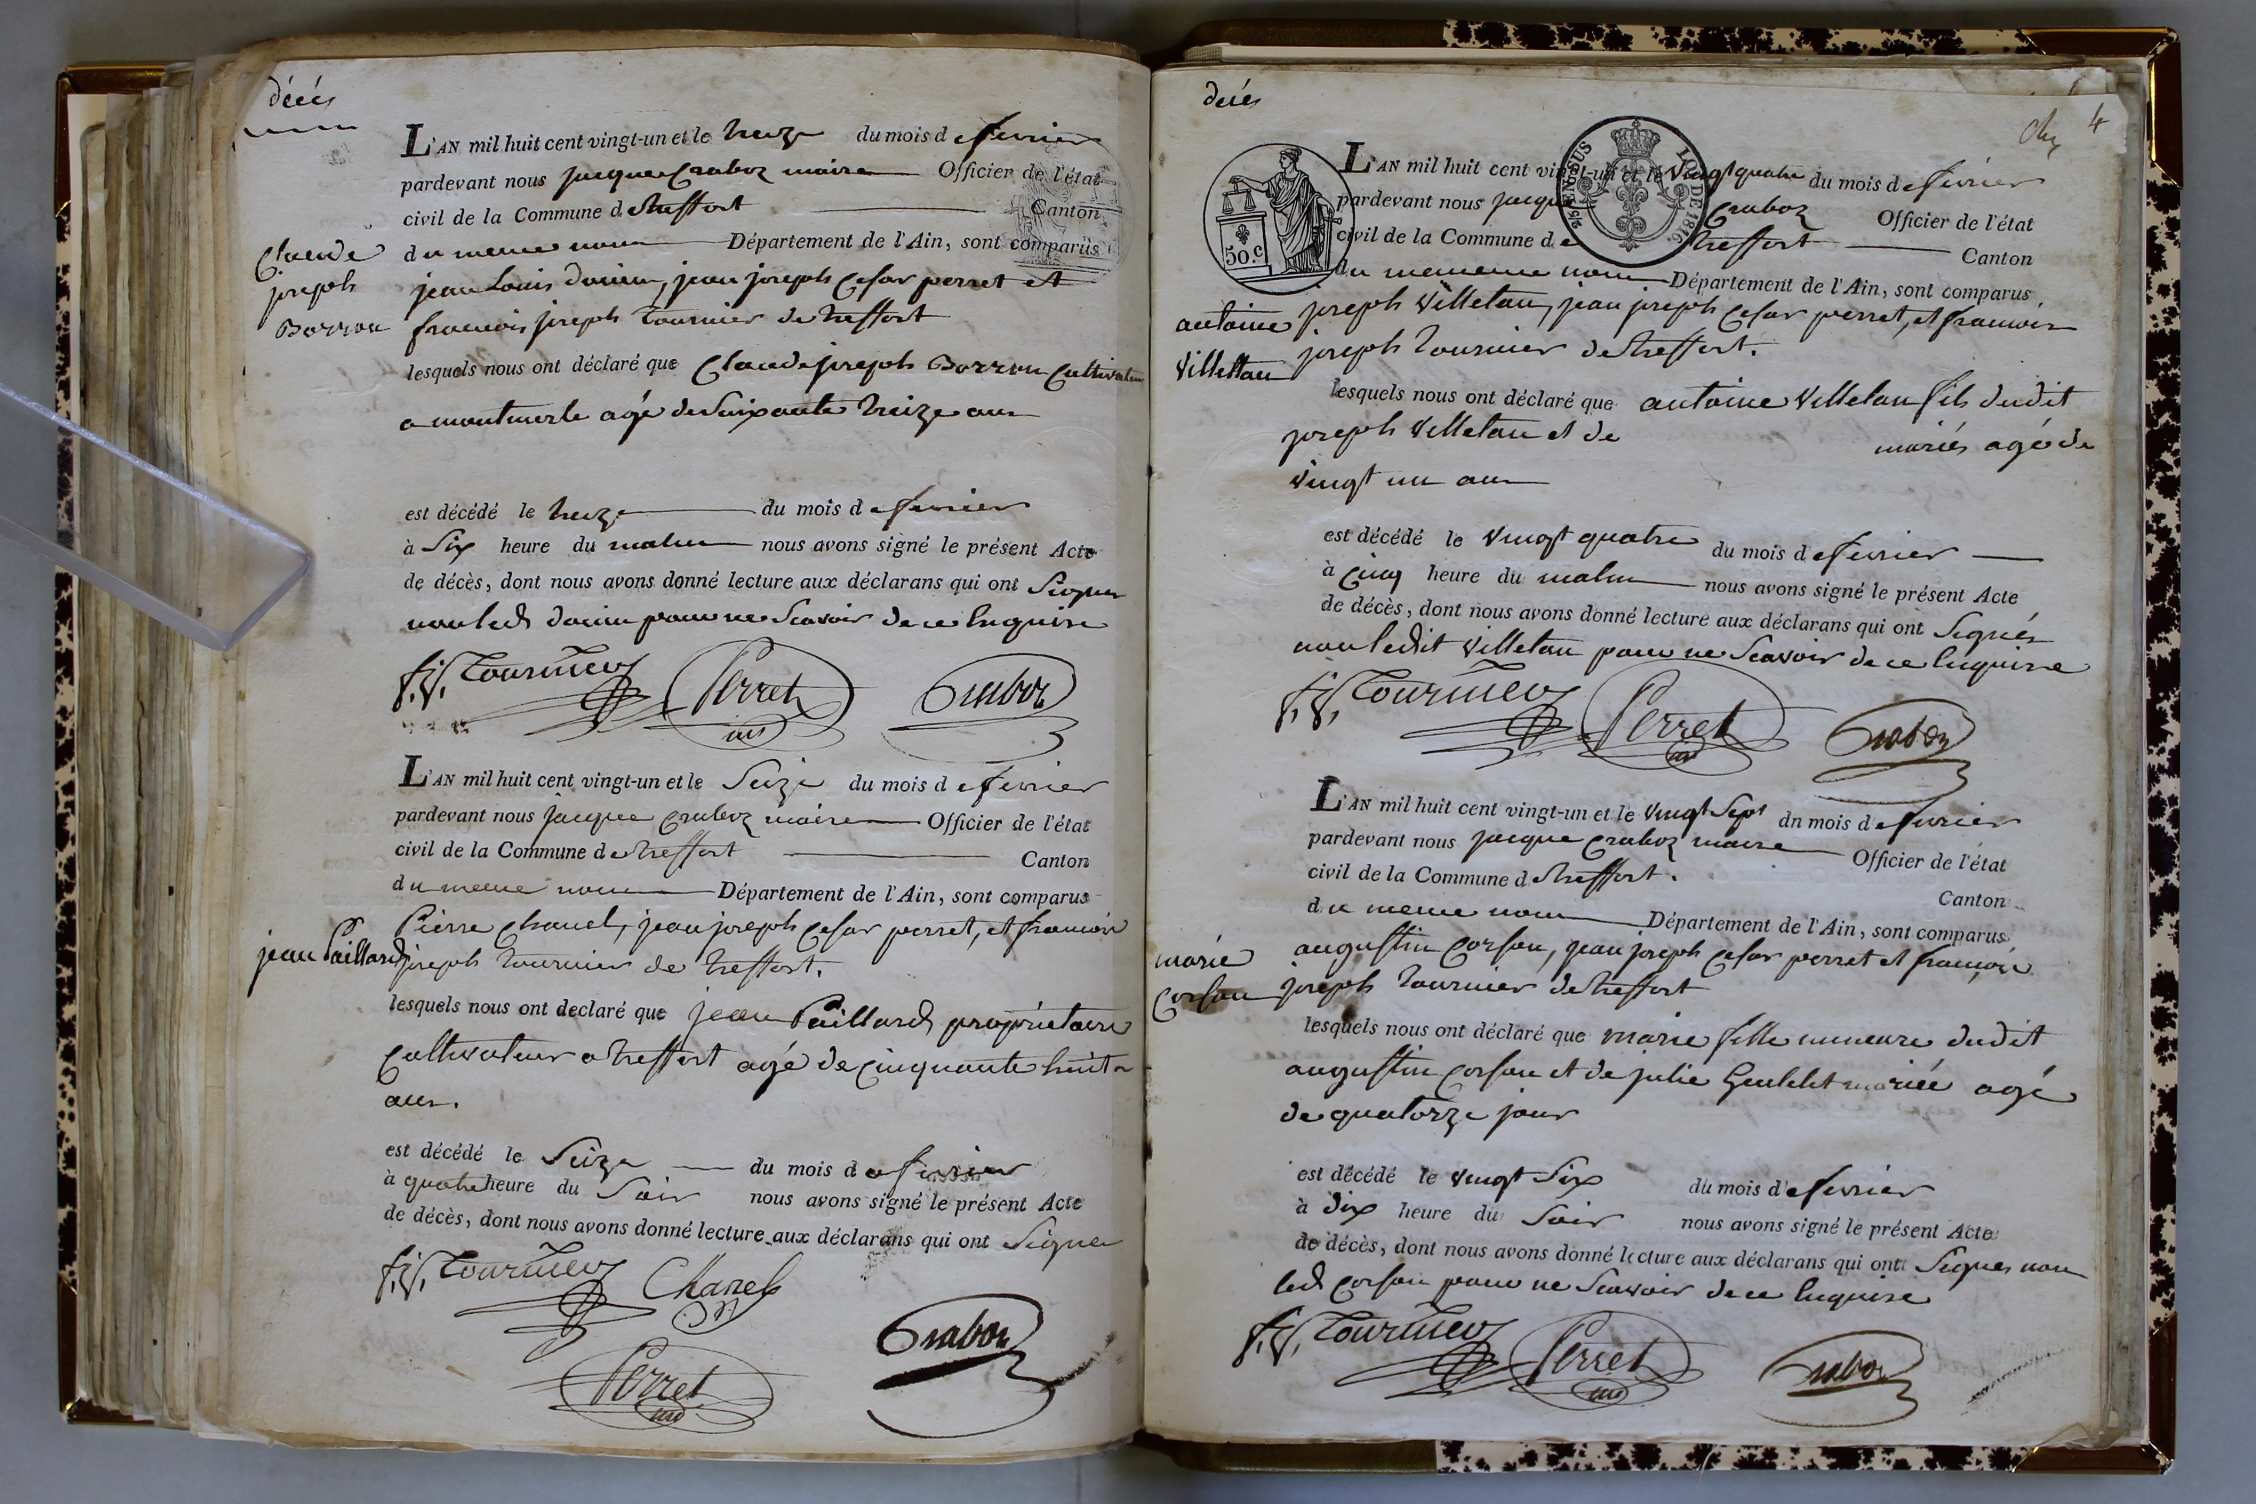 décés
L'AN mil huit cent vingt-un et le treize du mois de fevrier
pardevant nous jacque Craboz maire Officier de l'état
civil de la Commune de treffort Canton
du meme nom Département de l'Ain, sont comparus
Claude
joseph
Borron
jean Louis jean joseph Cesar perret et
francois joseph tournier de treffort
lesquels nous ont déclaré que Claude joseph Borron Cultivateur
a montmerle agé de Soixante treize ans
est décédé le treize du mois de fevrier
à Six heure du matin nous avons signé le présent Acte
de décès, dont nous avons donné lecture aux déclarans qui ont Signer
non led. pour ne Scavoir de ce Enquire
f. j. Tournier Perret Craboz
L'AN mil huit cent vingt-un et le Seize du mois de fevrier
pardevant nous jacque Craboz maire Officier de l'état
civil de la Commune de treffort Canton
du meme nom Département de l'Ain, sont comparus
jean Paillard
Pierre Chanel, jean joseph Cesar perret, et francois
joseph tournier de treffort.
lesquels nous ont declaré que jean Paillard propriétaire
Cultivateur a treffort agé de Cinquante huit
ans.
est décédé le Seize du mois de fevrier
à quatre heure du Soir nous avons signé le présent Acte
de décès, dont nous avons donné lecture aux déclarans qui ont Signer
f. j. Tournier Chanel
Perret Craboz
décés
4
50.c
25 EN SUS
LOI DE 1816.
L'AN mil huit cent vingt-un et le Vingt quatre du mois de fevrier
pardevant nous jacque Craboz Officier de l'état
civil de la Commune de treffort Canton
du mememe nom Département de l'Ain, sont comparus
antoine
Villettan
joseph Villetan, jean joseph Cesar perret, et francois
joseph tournier de treffort.
lesquels nous ont déclaré que antoine Villetan fils dudit
joseph Villetan et de mariés agé de
Vingt un ans
est décédé le Vingt quatre du mois de fevrier
à Cinq heure du matin nous avons signé le présent Acte
de décès, dont nous avons donné lecture aux déclarans qui ont Signés
non ledit Villetan pour ne Scavoir de ce Enquire
f. j. Tournier Perret Craboz
L'AN mil huit cent vingt-un et le Vingt Sept dn mois de fevrier
pardevant nous jacque Craboz maire Officier de l'état
civil de la Commune de treffort. Canton
du meme nom Département de l'Ain, sont comparus
marie
Corsan
augustin Corsan, jean joseph Cesar perret et francois
joseph tournier de treffort
lesquels nous ont déclaré que marie fille mineure dudit
augustin Corsan et de julie mariée agé
de quatorze jour
est décédé le vingt Six du mois de fevrier
à dix heure du Soir nous avons signé le présent Acte
de décès, dont nous avons donné lecture aux déclarans qui ont Signer non
led. Corsan pour ne Scavoir de ce Enquire
f. j. Tournier Perret Craboz